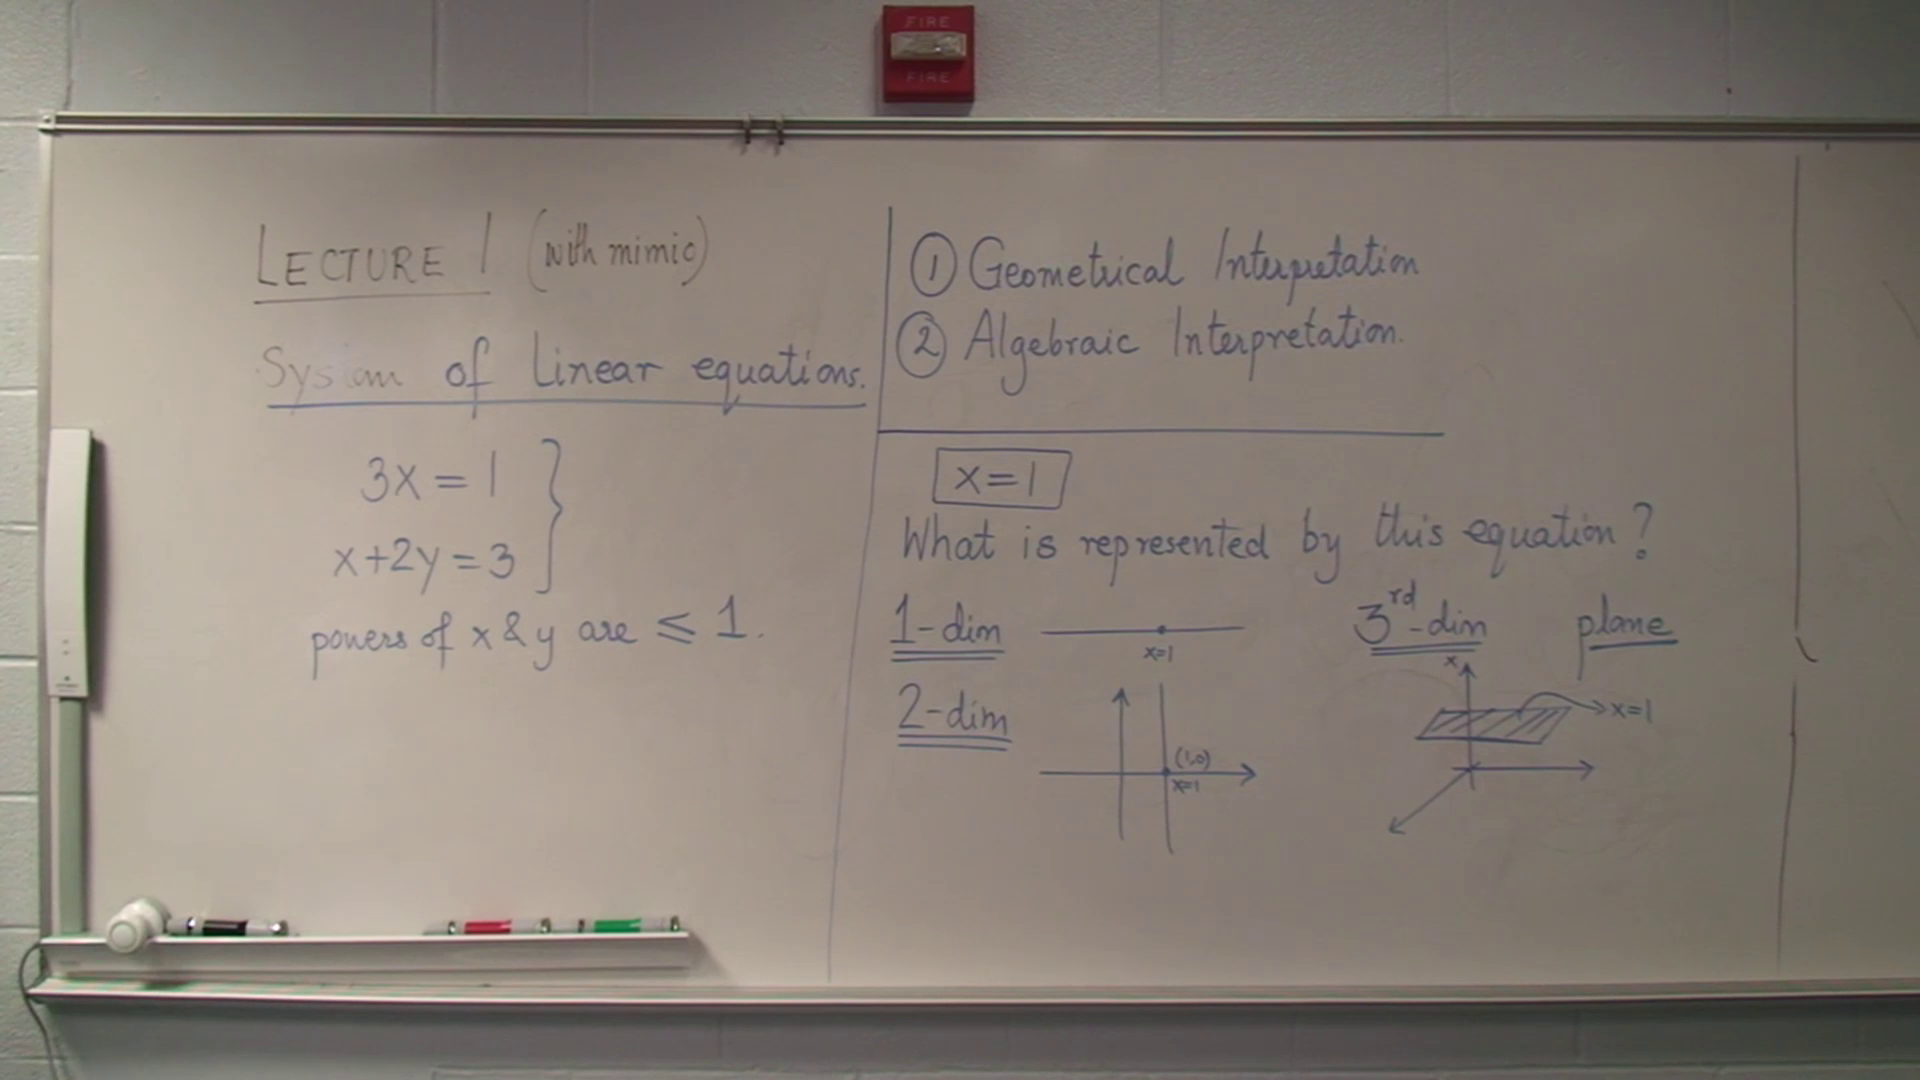 FIRE
FIRE
LECTURE 1 (with mimio)
System of Linear equations.
3x = 1
x+2y = 3
powers of x & y are ≤ 1.
① Geometrical Interpretation
② Algebraic Interpretation.
x=1
What is represented by this equation?
1-dim
x=1
2-dim
(1,0)
x=1
3rd-dim plane
x
x=1